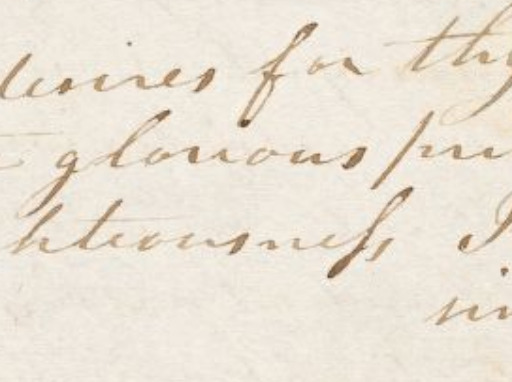 desires for thy
glorious pri
hteousness I
sin